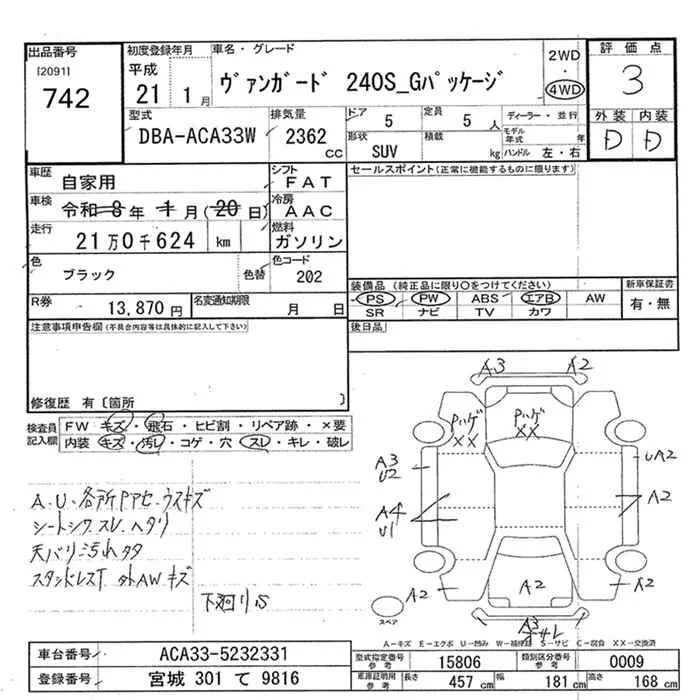 出品番号
[2091]
742
初度登録年月
平成
21 1月
車名・グレード
ヴァンガード 240S_Gパッケージ
2WD
・
4WD
評価点
3
外装 内装
D D
型式
DBA-ACA33W
排気量
2362
cc
ドア 5
定員 5人
ディーラー・並行
モデル年式 年
形状 SUV
積載 kg
ハンドル 左・右
車歴
自家用
シフト
FAT
車検
令和8年1月(20日)
冷房
AAC
走行
21万0千624 km
燃料
ガソリン
色
ブラック
色替
色コード
202
R券
13,870円
名変通知期限
月 日
セールスポイント(正常に機能するものに限ります)
装備品 (純正品に限り○をつけてください)
新車保証書
PS PW ABS エアB AW
SR ナビ TV カワ
有・無
後日品
注意事項申告欄(不具合内容等は具体的に記入して下さい)
修復歴 有〔箇所 〕
検査員記入欄
FW キズ・飛石・ヒビ割・リペア跡・×要
内装 キズ・汚レ・コゲ・穴・スレ・キレ・破レ
A.U.各所Pアセ.ウスキズ
シートシワ.スレ.ヘタリ
天バリ汚れタタ
スタッドレスT 外AWキズ
下廻りS
A3 A2
Pハゲ
XX
Pハゲ
XX
A3
U2
UA2
A4
U1
A2
A2
A2
A2
A3
スペア
A-キズ E-エクボ U-凹み W-補修跡 S-サビ C-腐食 XX-交換済
車台番号
ACA33-5232331
登録番号
宮城 301 て 9816
型式指定番号
参考
15806
類別区分番号
参考
0009
車庫証明用
参考
長さ 457 cm
幅 181 cm
高さ 168 cm